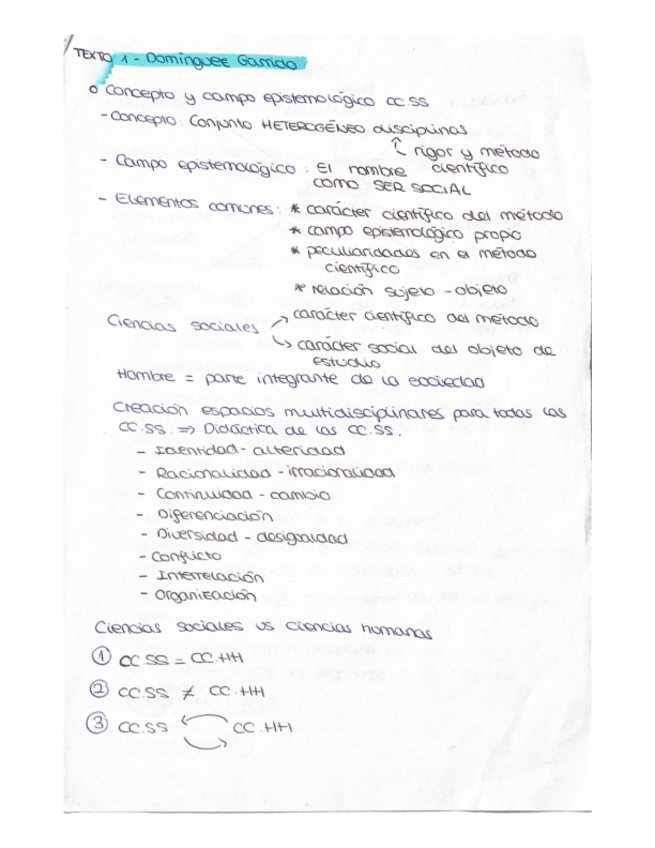 TEXTO 1 - Domínguez Garrido
o Concepto y campo epistemológico CC.SS
- Concepto: Conjunto HETEROGÉNEO disciplinas
rigor y método
científico
- Campo epistemológico: El hombre
como SER SOCIAL
- Elementos comunes: * carácter científico del método
* campo epistemológico propio
* peculiaridades en el método
científico
* relación sujeto - objeto
Ciencias sociales → carácter científico del método
↳ carácter social del objeto de
estudio
Hombre = parte integrante de la sociedad
Creación espacios multidisciplinares para todas las
CC.SS. ⇒ Didáctica de las CC.SS.
- Identidad - alteridad
- Racionalidad - irracionalidad
- Continuidad - cambio
- Diferenciación
- Diversidad - desigualdad
- Conflicto
- Interrelación
- Organización
Ciencias sociales vs ciencias humanas
① CC.SS = CC.HH
② CC.SS ≠ CC.HH
③ CC.SS ⇄ CC.HH